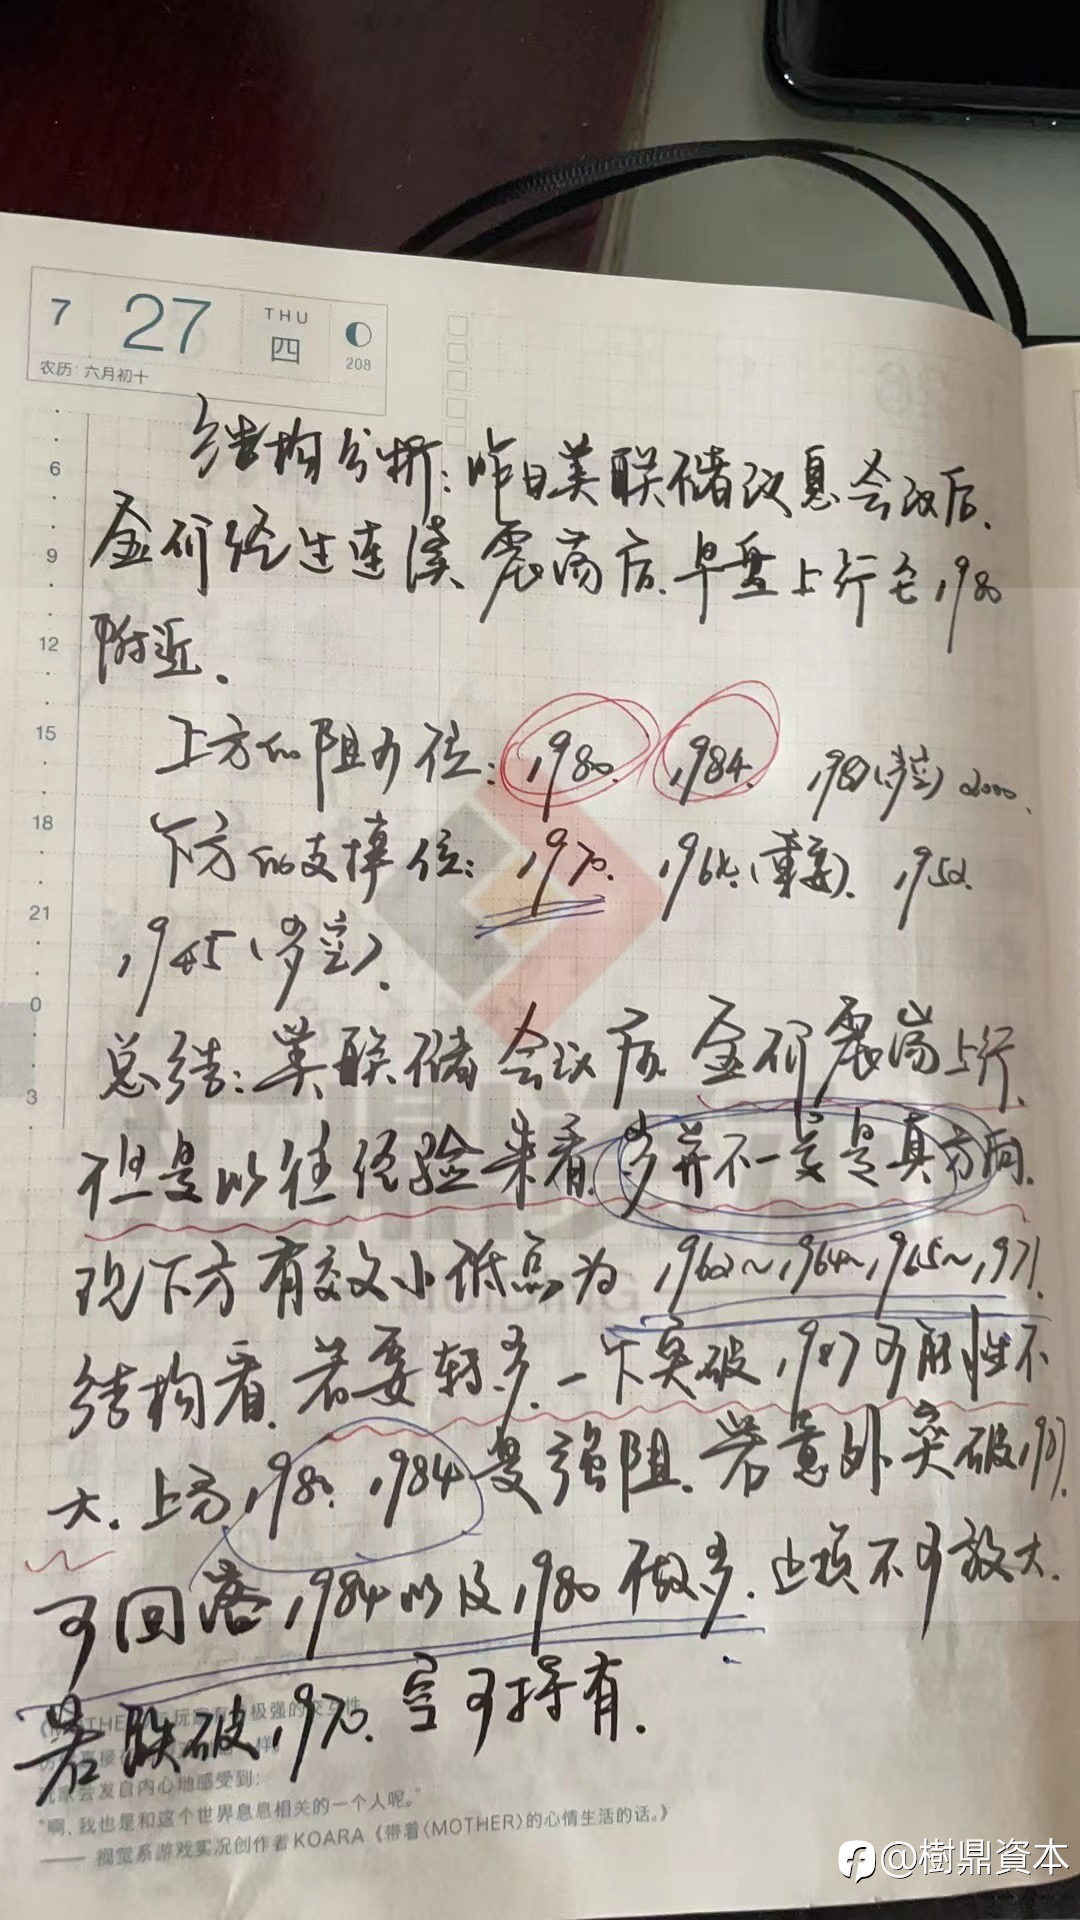 7 27 THU 四 208
农历：六月初十
6
9
12
15
18
21
0
3
结构分析：昨日美联储议息会议后.
金价经过连续震荡后.早盘上行至1980
附近.
上方的阻力位：1980. 1984. 1987(多空) 2000.
下方的支撑位：1970. (重要). 1952.
1945(多空).
总结：美联储会议后.金价震荡上行.
但是以往经验来看.多并不一定是真方向.
现下方有效小低点为1962~1964~1965~1971.
结构看.若要转多.一下突破1987可能性不
大.上方1980. 1984是强阻.若意外突破1987.
可回落1984以及1980做多.止损不可放大.
若跌破1970.空可持有.
"啊，我也是和这个世界息息相关的一个人呢。"
—— 视觉系游戏实况创作者KOARA《带着〈MOTHER〉的心情生活的话。》
HOLDING
@樹鼎資本